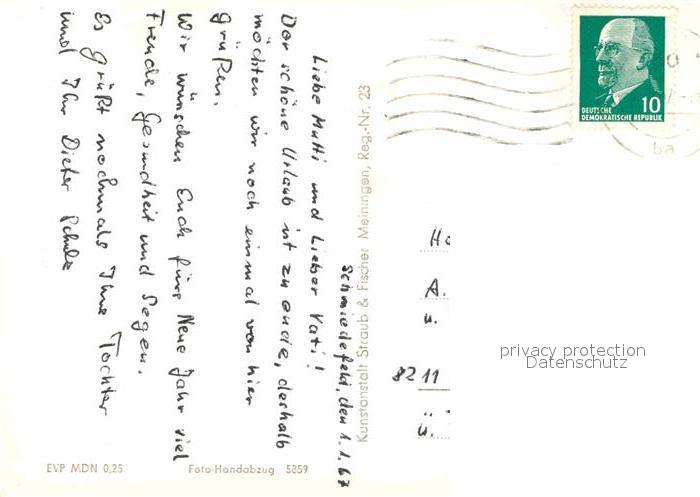 Schmiedefeld, den 1.1.67
Liebe Mutti und Lieber Vati!
Der schöne Urlaub ist zu ende, deshalb
möchten wir noch einmal von hier
grüßen.
Wir wünschen Euch fürs Neue Jahr viel
Freude, Gesundheit und Segen.
Es grüßt nochmals Ihre Tochter
und Ihr Dieter Schulz
Kunstanstalt Straub & Fischer Meiningen, Reg.-Nr. 23
EVP MDN 0,25
Foto-Handabzug 5859
DEUTSCHE
DEMOKRATISCHE REPUBLIK
10
ba
A.
u.
8211
ü.
privacy protection
Datenschutz